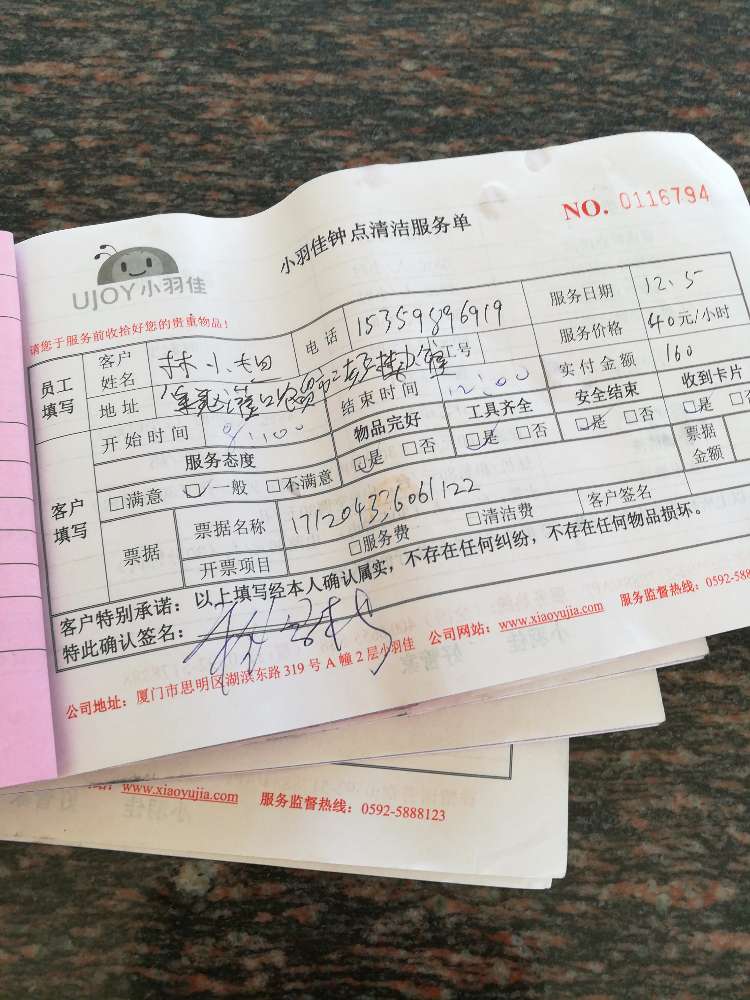 NO. 0116794
小羽佳钟点清洁服务单
UJOY小羽佳
请您于服务前收拾好您的贵重物品！
员工填写 客户姓名 林小 电话 15359896919 服务日期 12.5
地址 工号 服务价格 40元/小时
开始时间 9:00 结束时间 12:00 实付金额 160
客户填写 服务态度 物品完好 工具齐全 安全结束 收到卡片
□满意 □一般 □不满意 □是 □否 □是 □否 □是 □否 □是
票据 票据名称 171204336061122 票据金额
开票项目 □服务费 □清洁费 客户签名
客户特别承诺：以上填写经本人确认属实，不存在任何纠纷，不存在任何物品损坏。
特此确认签名：
公司地址：厦门市思明区湖滨东路319号A幢2层小羽佳 公司网站：www.xiaoyujia.com 服务监督热线：0592-588
www.xiaoyujia.com 服务监督热线：0592-5888123